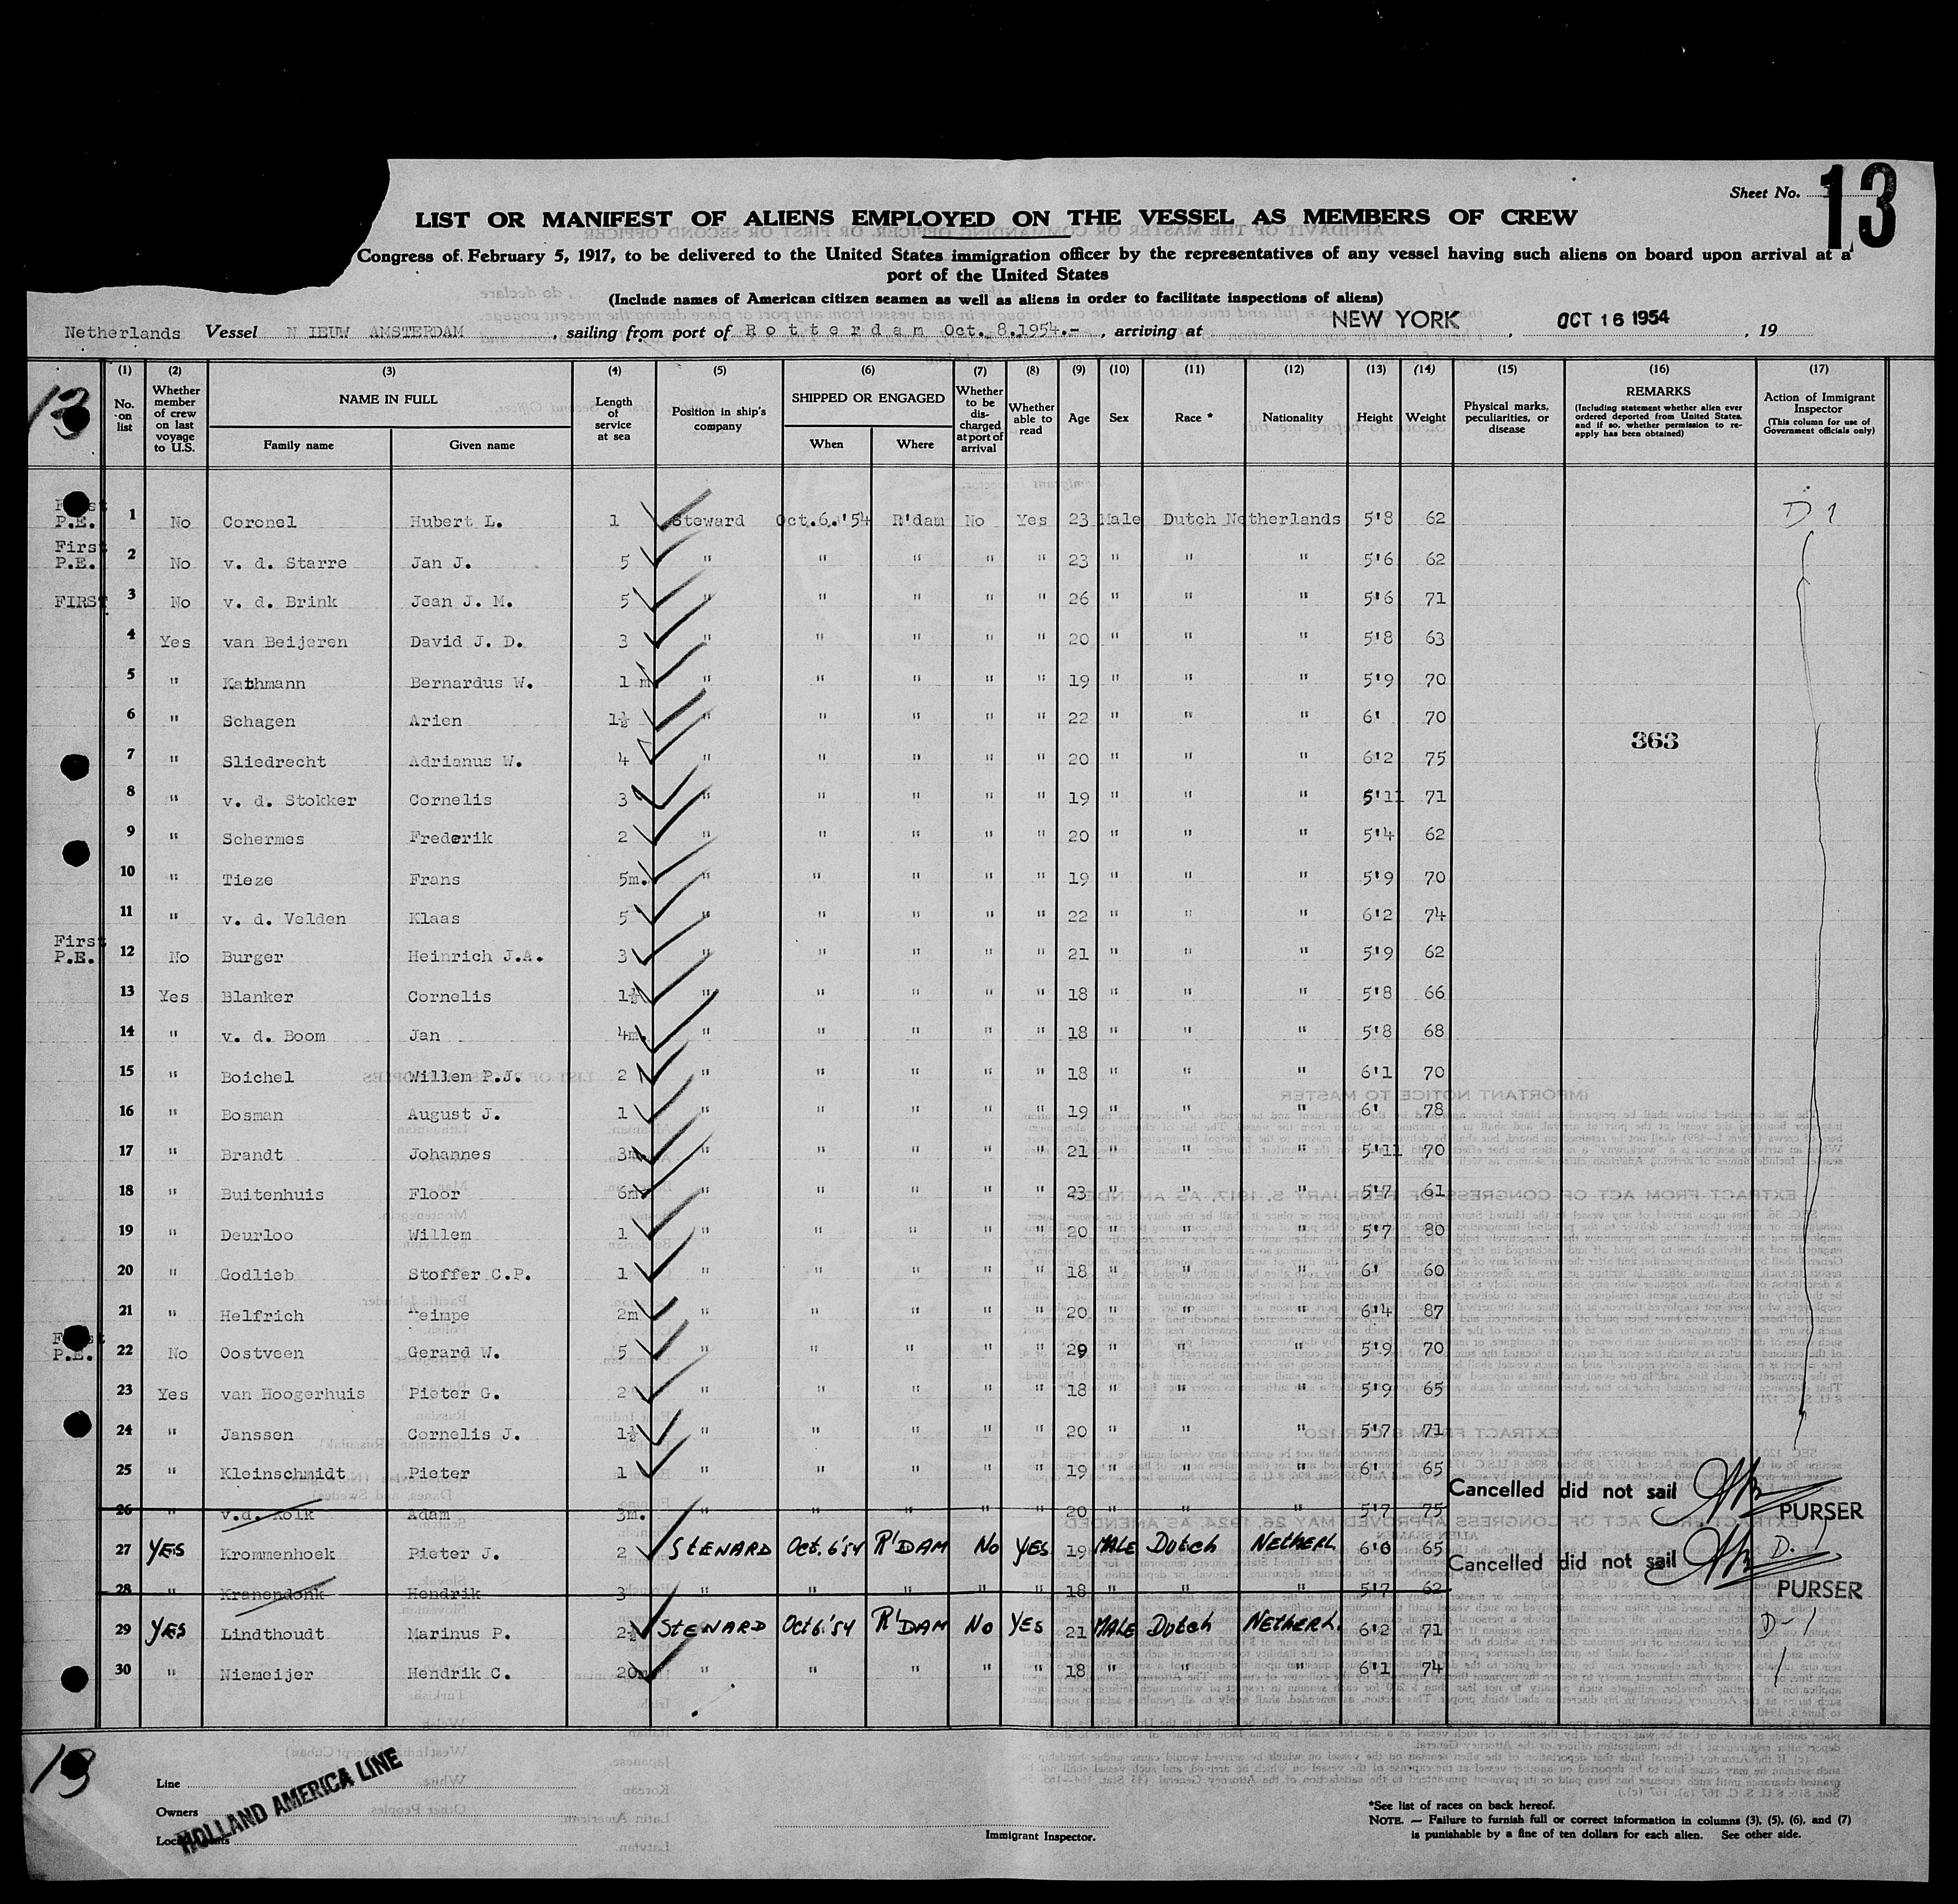 Sheet No. 13
LIST OR MANIFEST OF ALIENS EMPLOYED ON THE VESSEL AS MEMBERS OF CREW
Congress of February 5, 1917, to be delivered to the United States immigration officer by the representatives of any vessel having such aliens on board upon arrival at a
port of the United States
(Include names of American citizen seamen as well as aliens in order to facilitate inspections of aliens)
Netherlands Vessel N IEUW AMSTERDAM, sailing from port of Rotterdam Oct. 8.1954.-, arriving at NEW YORK, OCT 16 1954, 19
13
(1) No. on list
(2) Whether member of crew on last voyage to U.S.
(3) NAME IN FULL Family name Given name
(4) Length of service at sea
(5) Position in ship's company
(6) SHIPPED OR ENGAGED When Where
(7) Whether to be discharged at port of arrival
(8) Whether able to read
(9) Age
(10) Sex
(11) Race *
(12) Nationality
(13) Height
(14) Weight
(15) Physical marks, peculiarities, or disease
(16) REMARKS (Including statement whether alien ever ordered deported from United States, and if so, whether permission to re-apply has been obtained)
(17) Action of Immigrant Inspector (This column for use of Government officials only)
First P.E. 1 No Coronel Hubert L. 1 Steward Oct.6.'54 R'dam No Yes 23 Male Dutch Netherlands 5'8 62 D 1
First P.E. 2 No v. d. Starre Jan J. 5 " " " " " 23 " " " 5'6 62
FIRST 3 No v. d. Brink Jean J. M. 5 " " " " " 26 " " " 5'6 71
4 Yes van Beijeren David J. D. 3 " " " " " 20 " " " 5'8 63
5 " Kathmann Bernardus W. 1 m " " " " " 19 " " " 5'9 70
6 " Schagen Arien 1½ " " " " " 22 " " " 6' 70
363
7 " Sliedrecht Adrianus W. 4 " " " " " 20 " " " 6'2 75
8 " v. d. Stokker Cornelis 3 " " " " " 19 " " " 5'11 71
9 " Schermes Frederik 2 " " " " " 20 " " " 5'4 62
10 " Tieze Frans 5m. " " " " " 19 " " " 5'9 70
11 " v. d. Velden Klaas 5 " " " " " 22 " " " 6'2 74
First P.E. 12 No Burger Heinrich J.A. 3 " " " " " 21 " " " 5'9 62
13 Yes Blanker Cornelis 1½ " " " " " 18 " " " 5'8 66
14 " v. d. Boom Jan 4m. " " " " " 18 " " " 5'8 68
15 " Boichel Willem P.J. 2 " " " " " 18 " " " 6'1 70
16 " Bosman August J. 1 " " " " " 19 " " " 6' 78
17 " Brandt Johannes 3m " " " " " 21 " " " 5'11 70
18 " Buitenhuis Floor 6m " " " " " 23 " " " 5'7 61
19 " Deurloo Willem 1 " " " " " 20 " " " 5'7 80
20 " Godlieb Stoffer C.P. 1 " " " " " 18 " " " 6' 60
21 " Helfrich eimpe 2m " " " " " 20 " " " 6'4 87
First P.E. 22 No Oostveen Gerard W. 5 " " " " " 29 " " " 5'9 70
23 Yes van Hoogerhuis Pieter G. 2 " " " " " 18 " " " 5'9 65
24 " Janssen Cornelis J. 1½ " " " " " 20 " " " 5'7 71
25 " Kleinschmidt Pieter 1 " " " " " 19 " " " 6' 65
26 " v.d. Kolk Adam 3m. " " " " " 20 " " " 5'7 75 Cancelled did not sail PURSER
27 YES Krommenhoek Pieter J. 2 STEWARD Oct.6'54 R'DAM No YES 19 MALE Dutch NETHERL. 6'0 65 D. 1
28 " Kranendonk Hendrik 3 " " " " " 18 " " " 5'7 62 Cancelled did not sail PURSER
29 YES Lindthoudt Marinus P. 2½ STEWARD Oct6'54 R'DAM No YES 21 MALE Dutch NETHERL. 6'2 71 D-1
30 " Niemeijer Hendrik C. 20m " " " " " 18 " " " 6'1 74
13
Line
Owners
Local Agents
HOLLAND AMERICA LINE
Immigrant Inspector.
*See list of races on back hereof.
NOTE. — Failure to furnish full or correct information in columns (3), (5), (6), and (7)
is punishable by a fine of ten dollars for each alien. See other side.